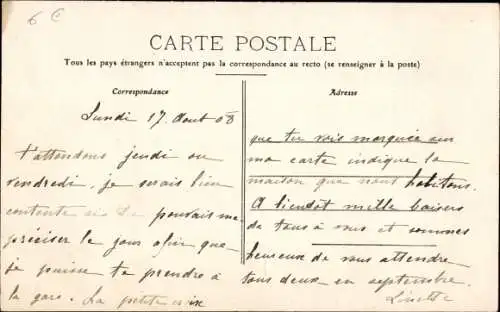 6 €
CARTE POSTALE
Tous les pays étrangers n'acceptent pas la correspondance au recto (se renseigner à la poste)
Correspondance
Lundi 17 Aout 08
t'attendons jeudi ou
vendredi. je serais bien
contente si pouvais me
préciser le jour afin que
je puisse te prendre à
la gare. La petite croix
Adresse
que tu vois marquée sur
ma carte indique la
maison que nous habitons.
A bientôt mille baisers
de tous à vous et sommes
heureuse de vous attendre
tous deux en septembre.
Linette